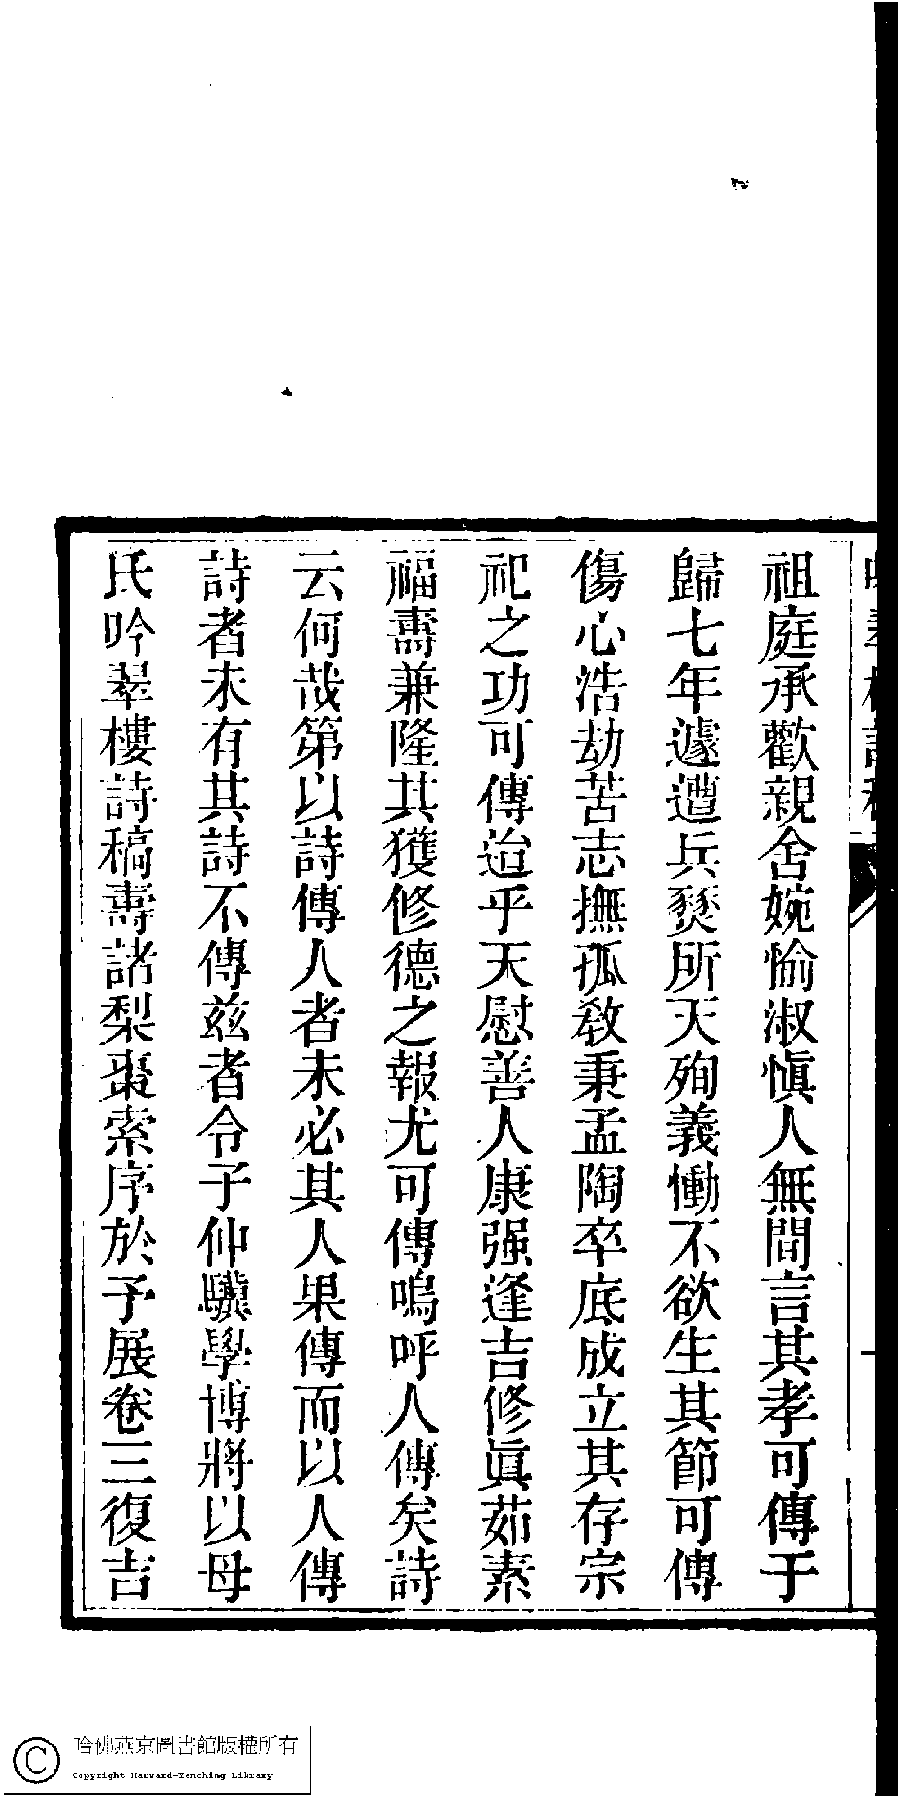 祖庭承歡親舍婉愉淑愼人無間言其孝可傳于
歸七年遽遭兵燹所天殉義慟不欲生其節可傳
傷心浩劫苦志撫孤敎秉孟陶卒底成立其存宗
祀之功可傳迨乎天慰善人康强逢吉修眞茹素
福壽兼隆其獲修德之報尤可傳嗚呼人傳矣詩
云何哉第以詩傳人者未必其人果傳而以人傳
詩者未有其詩不傳兹者令子仲驥學博將以母
氏吟翠樓詩稿壽諸梨棗索序於予展卷三復吉
哈佛燕京圖書館版權所有
Copyright Harvard-Yenching Library